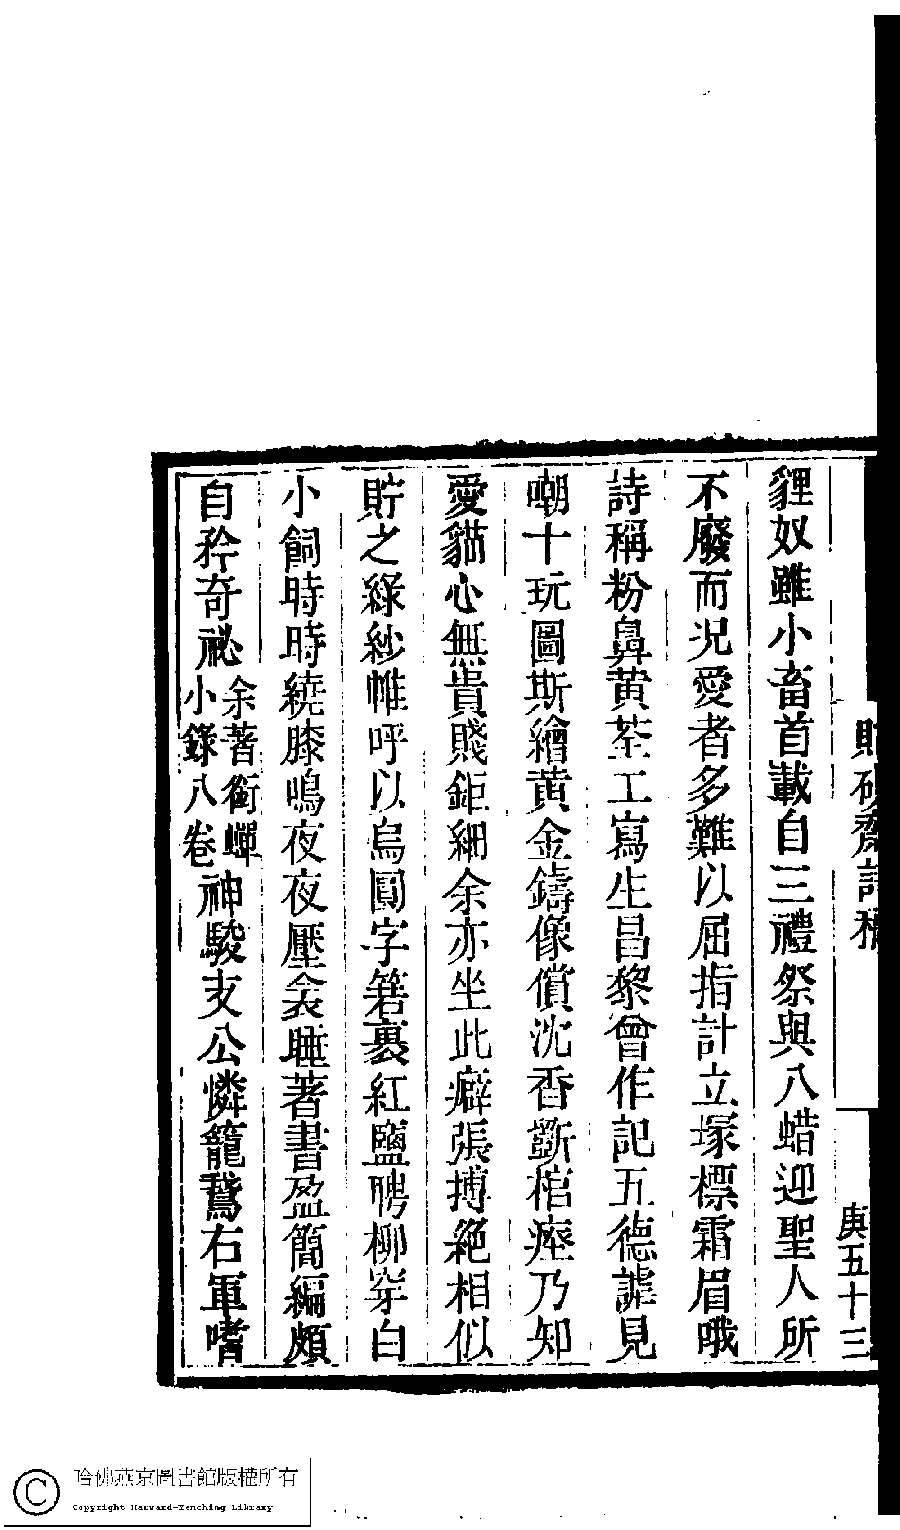 貯硯齋詩稿
庚五十三
貍奴雖小畜首載自三禮祭與八蜡迎聖人所
不廢而況愛者多難以屈指計立塚標霜眉哦
詩稱粉鼻黄荃工寫生昌黎曾作記五德謔見
嘲十玩圖斯繪黄金鑄像償沈香斵棺瘞乃知
愛貓心無貴賤鉅細余亦坐此癖張搏絕相似
貯之綠紗帷呼以烏圓字箬裹紅鹽聘柳穿白
小飼時時繞膝鳴夜夜壓衾睡著書盈簡編頗
自矜奇祕余著銜蟬小錄八卷神駿支公憐籠鵞右軍嗜
哈佛燕京圖書館版權所有
Copyright Harvard-Yenching Library